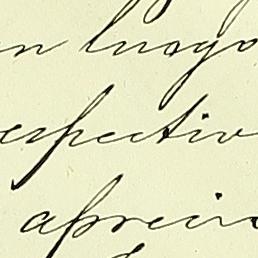 n luogo
espectiv
apreci